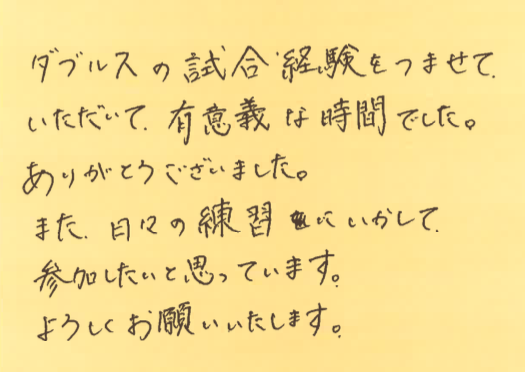 ダブルスの試合経験をつませて、
いただいて、有意義な時間でした。
ありがとうございました。
また、日々の練習にいかして、
参加したいと思っています。
よろしくお願いいたします。